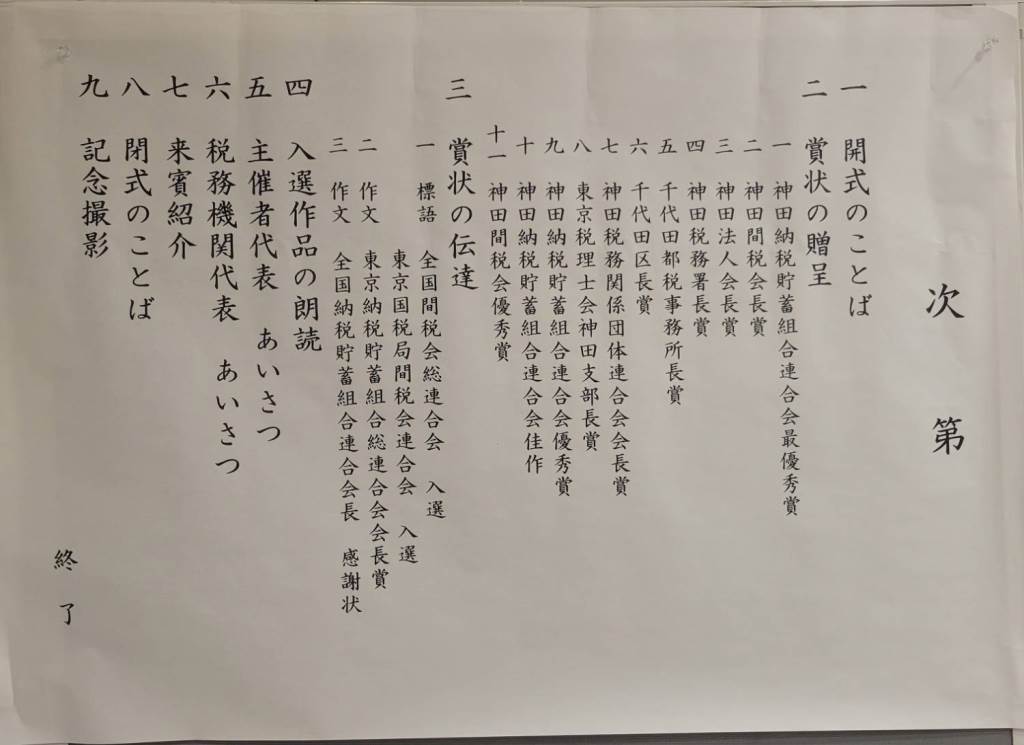 次第
一 開式のことば
二 賞状の贈呈
一 神田納税貯蓄組合連合会最優秀賞
二 神田間税会長賞
三 神田法人会長賞
四 神田税務署長賞
五 千代田都税事務所長賞
六 千代田区長賞
七 神田税務関係団体連合会会長賞
八 東京税理士会神田支部長賞
九 神田納税貯蓄組合連合会優秀賞
十 神田納税貯蓄組合連合会佳作
十一 神田間税会優秀賞
三 賞状の伝達
一 標語 全国間税会総連合会 入選
東京国税局間税会連合会 入選
二 作文 東京納税貯蓄組合総連合会会長賞
三 作文 全国納税貯蓄組合連合会長 感謝状
四 入選作品の朗読
五 主催者代表 あいさつ
六 税務機関代表 あいさつ
七 来賓紹介
八 閉式のことば
九 記念撮影
終了